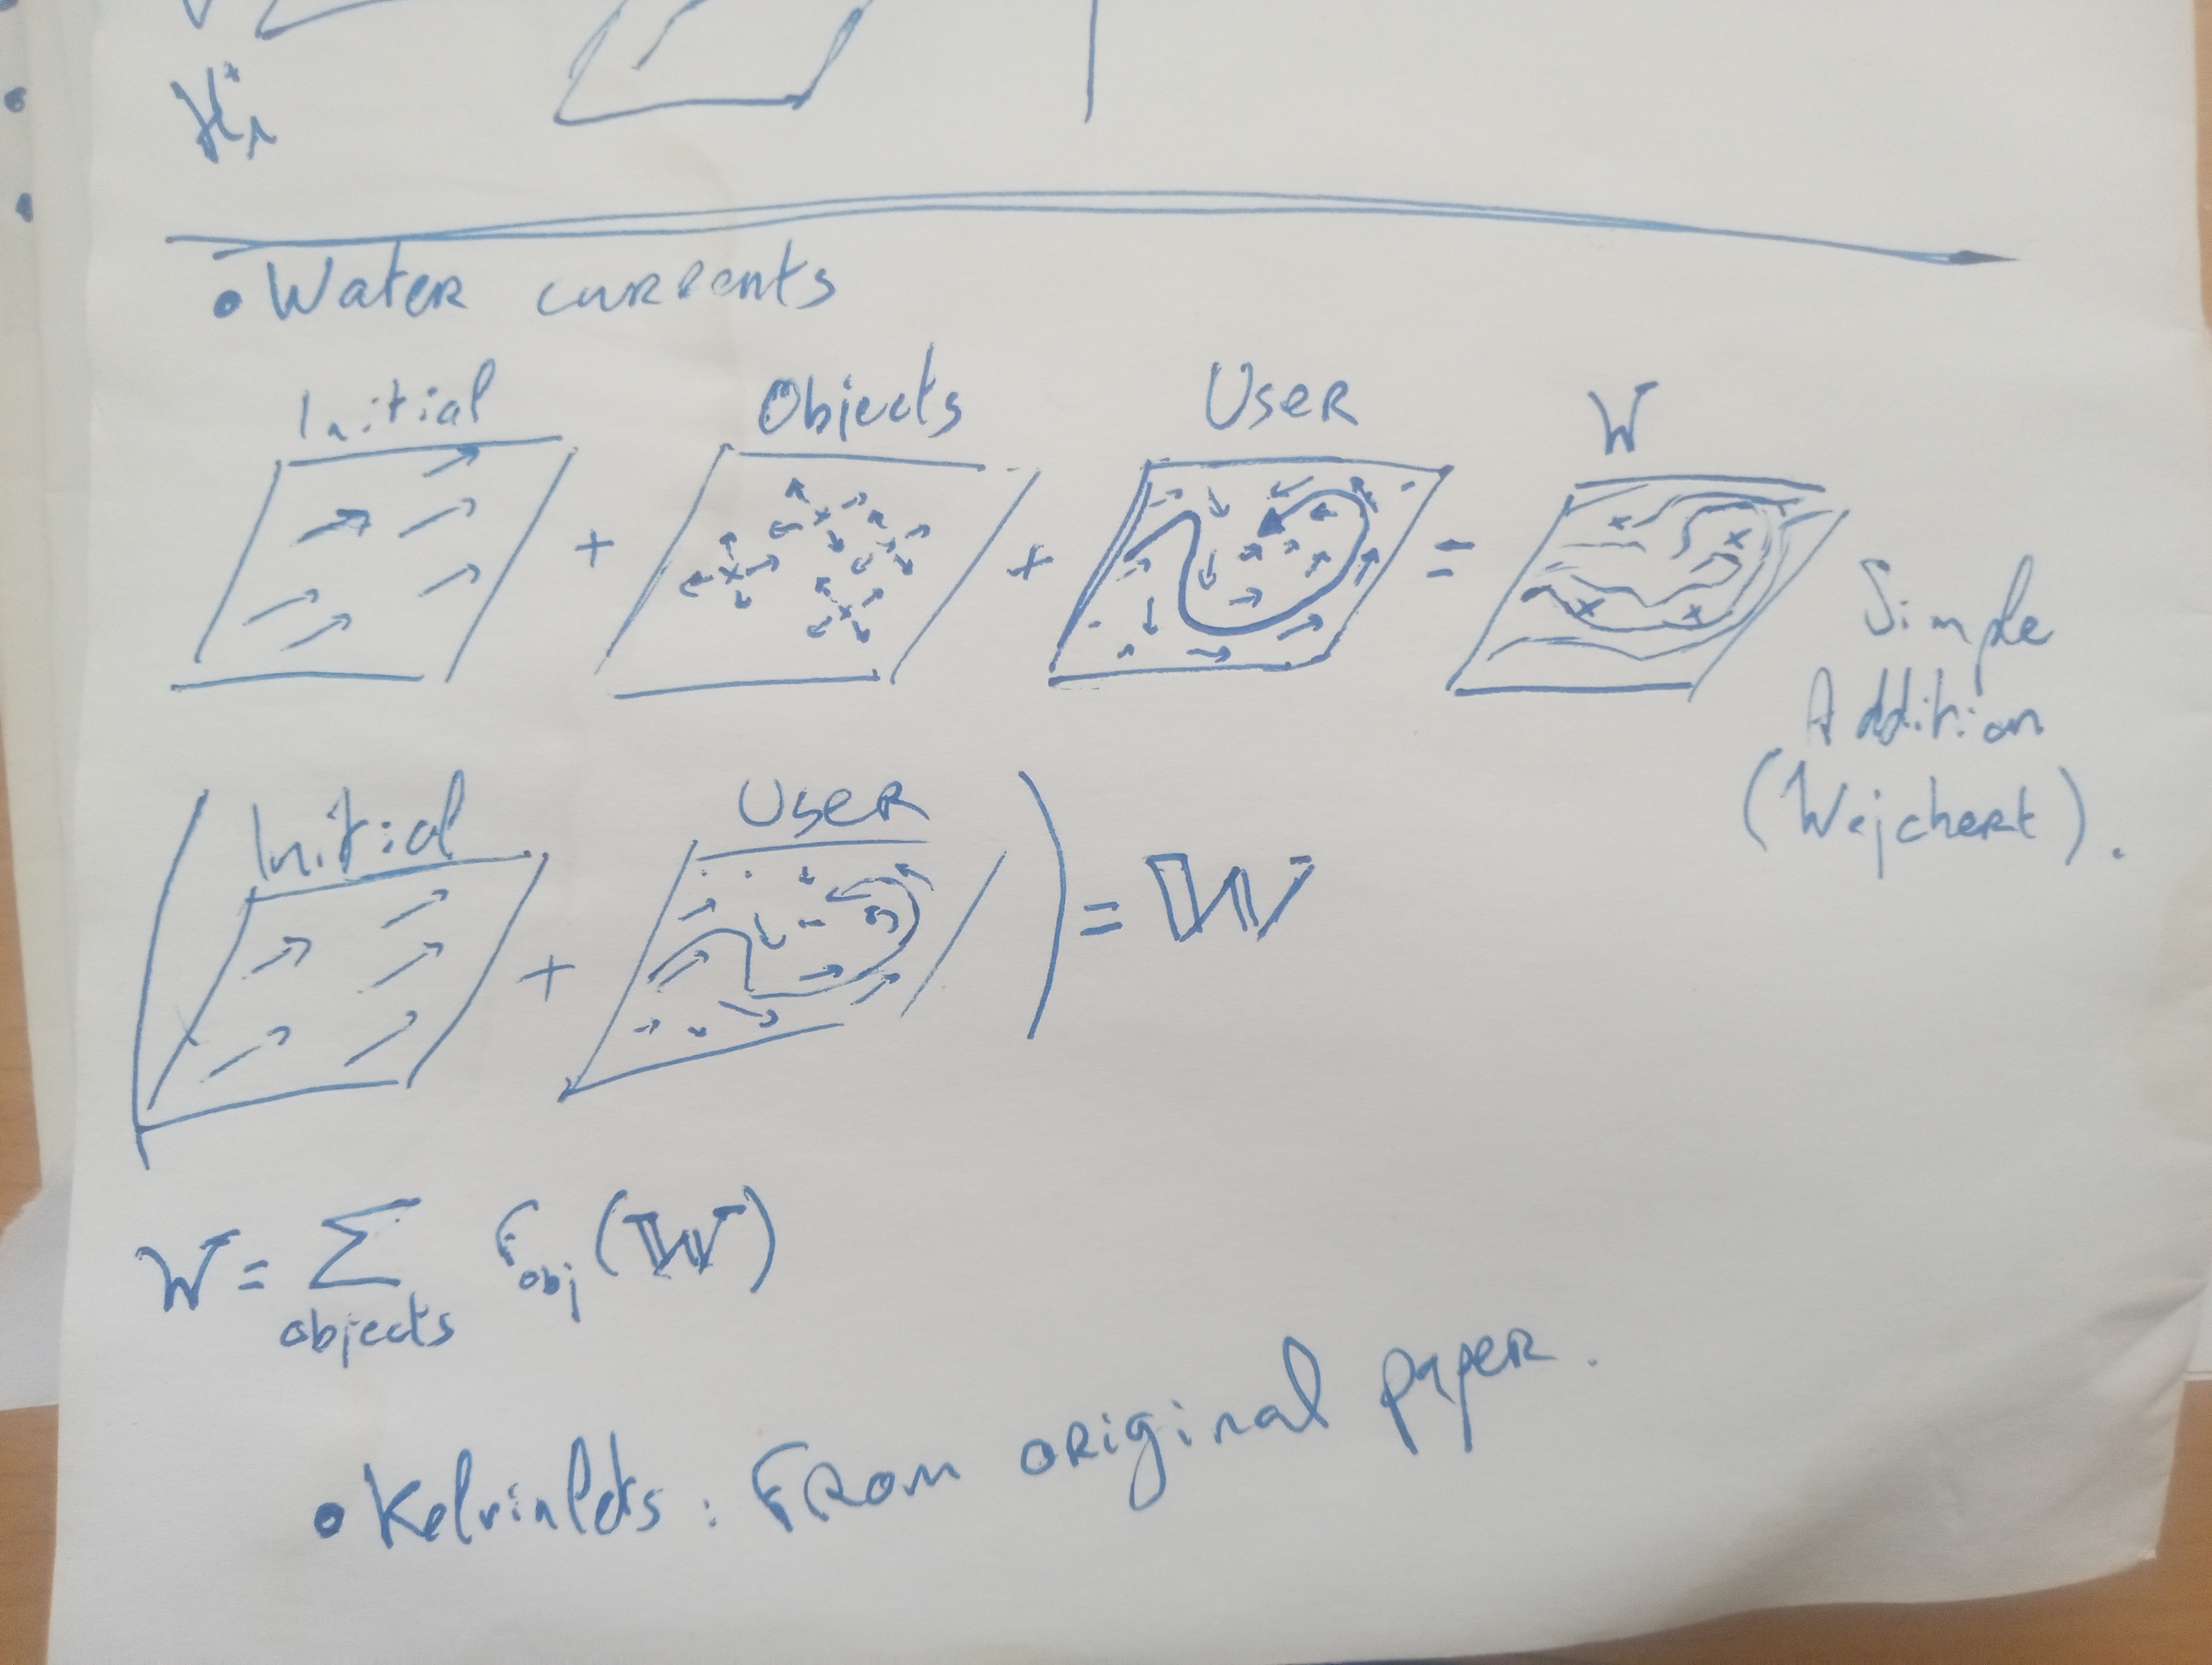 • Water currents
Initial + Objects + User = W
Simple
Addition
(Wejchert).
(Initial + User) = W
W = Σ f obj (W)
objects
• Kelvinlets: from original paper.